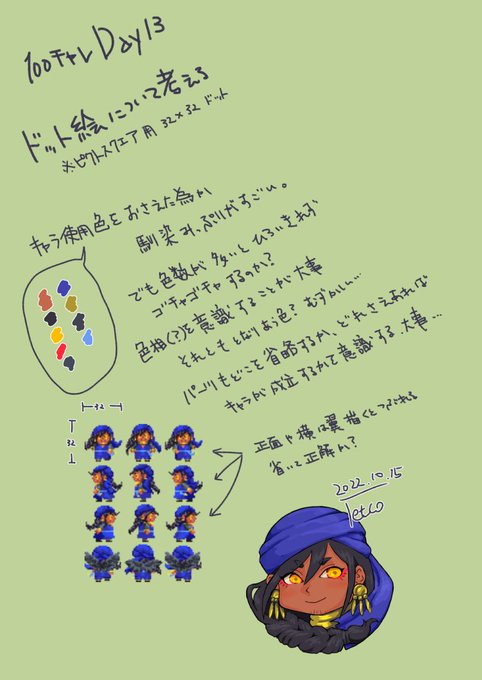 100チャレ Day13
ドット絵について考える
※ピクトスクエア用 32×32 ドット
キャラ使用色をおさえた為か
馴染みっぷりがすごい。
でも色数が多いとひろいきれず
ゴチャゴチャするのか?
色相(?)を意識することが大事
それともとなりあう色?むずかしい…
パーツもどこを省略するか、どれさえあれば
キャラが成立するかて意識する大事…
32
32
正面や横は翼描くとつぶれる
省いて正解か?
2022.10.15